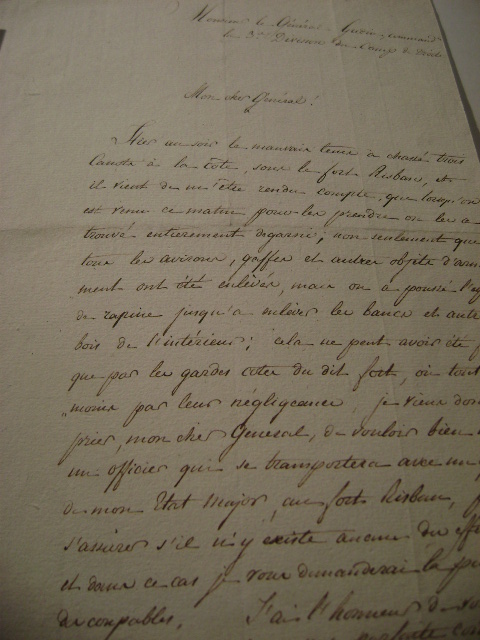 Monsieur le Général Guvin, commandt
la 3e Division du Camp de
Mon cher Général!
Hier au soir le mauvais tems a chassé trois
Canots à la côte, sous le fort Risban, et
il vient de m'être rendu compte, que lorsqu'on
est venu ce matin pour les prendre on les a
trouvé entierement degarni; non seulement que
tous les avirons, gaffes et autres objets d'arm
ment ont été enlevés, mais on a poussé l'es
de rapine jusqu'à enlever les bancs et autr
bois de l'intérieur; cela ne peut avoir été f
que par les gardes côtes du dit fort, où tout
moins par leur négligeance, je viens don
prier, mon cher General, de vouloir bien
un officier qui se transportera avec un
de mon Etat Major, au fort Risban, p
s'assurer s'il n'y existe aucuns des effe
et dans ce cas je vous demanderai la pu
des coupables. J'ai l'honneur de v
parfaite con